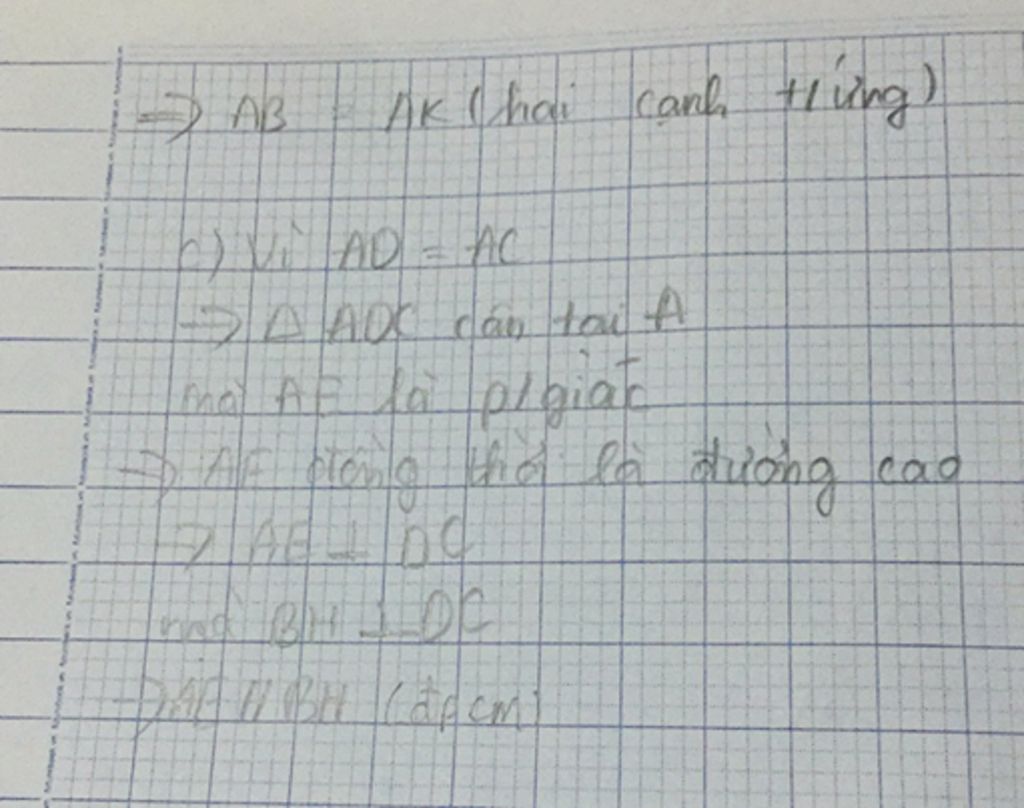 => AB = AK (hai cạnh t/ứng)
c) Vì AD = AC
=> Δ ADC cân tại A
mà AE là p/giác
=> AE đồng thời là đường cao
=> AE ⊥ DC
mà BH ⊥ DC
=> AE // BH (đpcm)